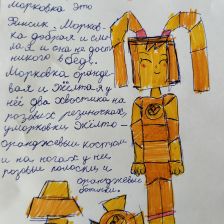 Морковка это
Фиксик. Морков-
ка добрая и смела
я и она не бост
никого в беде.
Морковка оранже
вая и жёлтая, у
неё два хвостика на
розових резиночках,
у морковки жёлто-
оранжевый костюм
и на ногах у неё
розовые полоски и
оранжевые
ботинки.